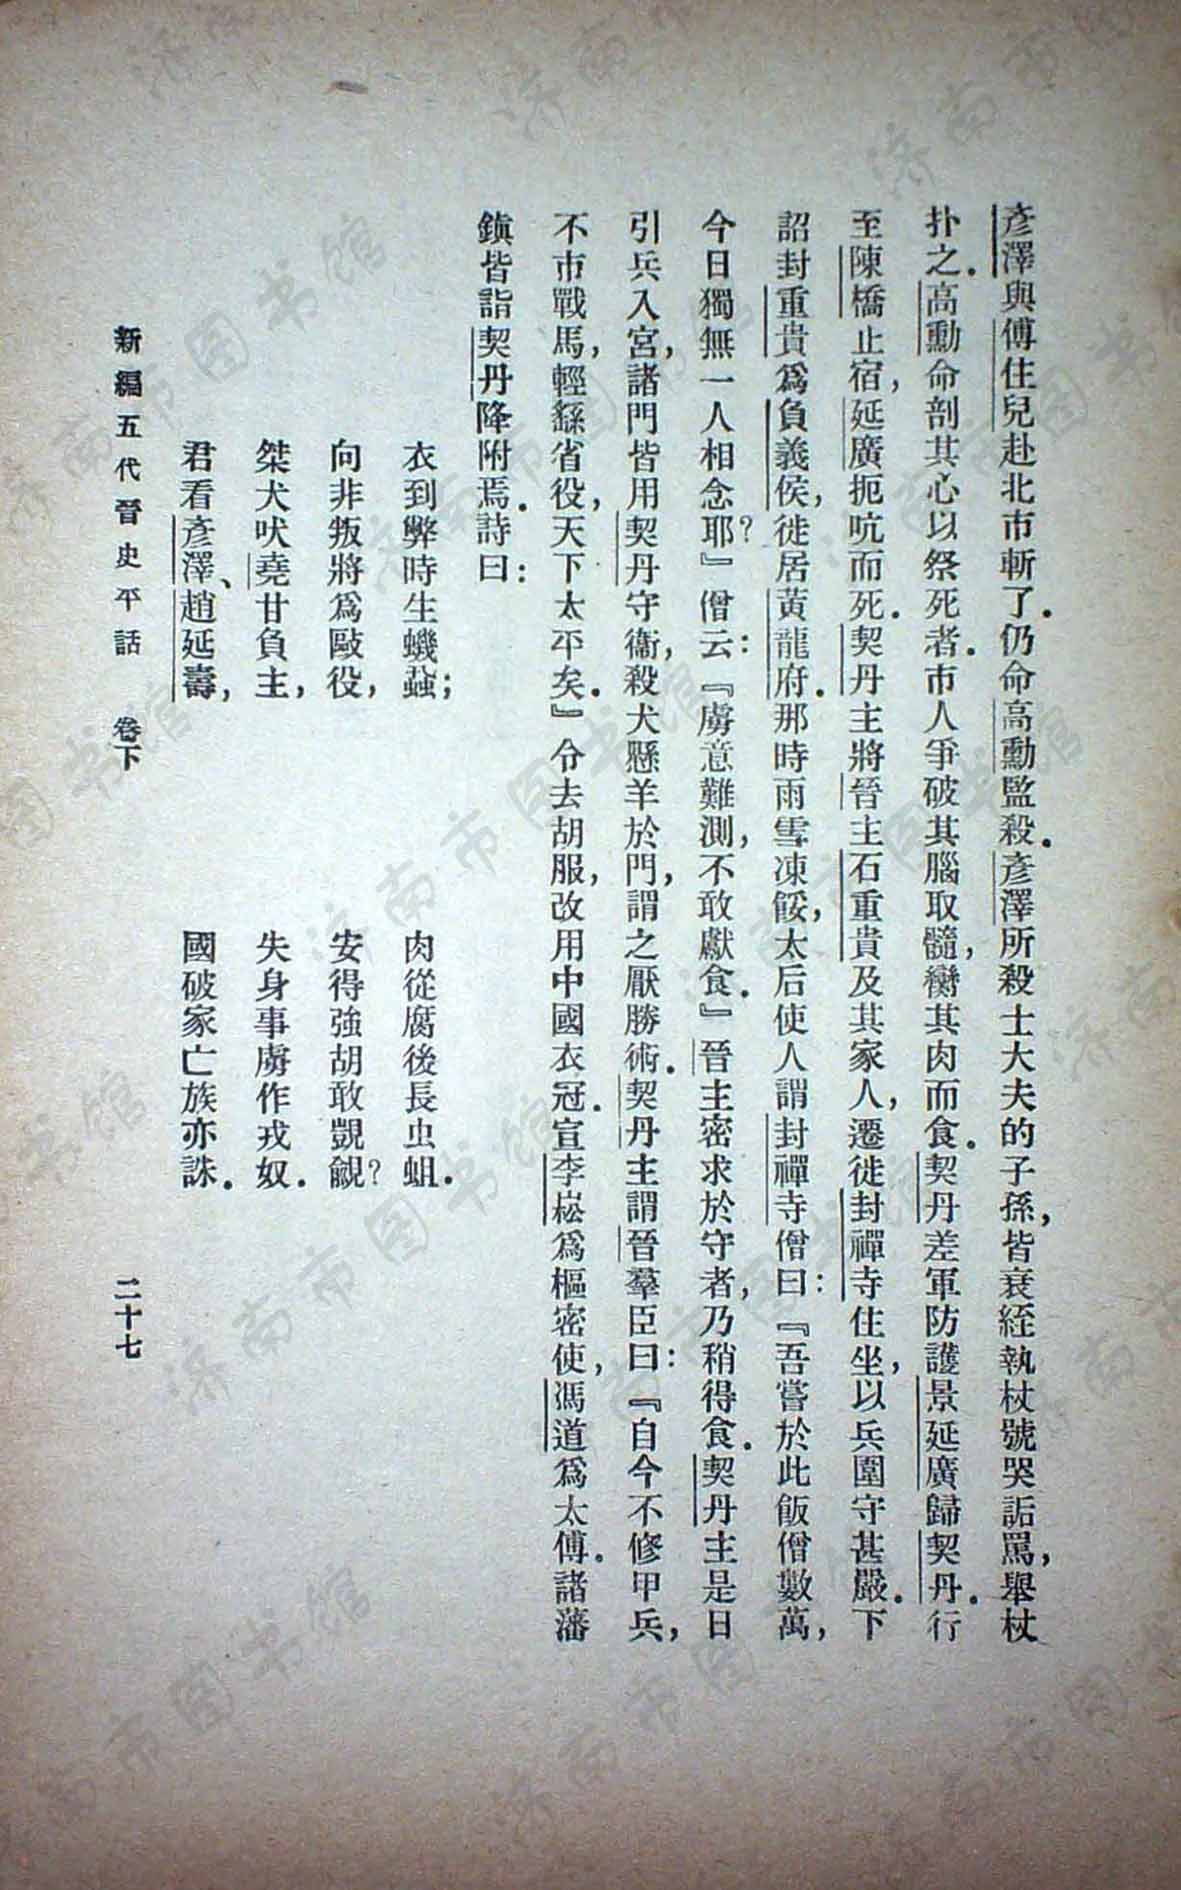 彥澤與傅住兒赴北市斬了。仍命高勳監殺。彥澤所殺士大夫的子孫，皆衰絰執杖號哭詬罵，舉杖
扑之。高勳命剖其心以祭死者。市人爭破其腦取髓，臠其肉而食。契丹差軍防護景延廣歸契丹。行
至陳橋止宿，延廣扼吭而死。契丹主將晉主石重貴及其家人，遷徙封禪寺住坐，以兵圍守甚嚴。下
詔封重貴爲負義侯，徙居黃龍府。那時雨雪凍餒，太后使人謂封禪寺僧曰：『吾嘗於此飯僧數萬，
今日獨無一人相念耶？』僧云：『虜意難測，不敢獻食。』晉主密求於守者，乃稍得食。契丹主是日
引兵入宮，諸門皆用契丹守衞，殺犬懸羊於門，謂之厭勝術。契丹主謂晉羣臣曰：『自今不修甲兵，
不市戰馬，輕繇省役，天下太平矣。』令去胡服，改用中國衣冠。宣李崧爲樞密使，馮道爲太傅。諸藩
鎮皆詣契丹降附焉。詩曰：
衣到弊時生蟣蝨；　肉從腐後長虫蛆。
向非叛將爲敺役，　安得強胡敢覬覦？
桀犬吠堯甘負主，　失身事虜作戎奴。
君看彥澤、趙延壽，　國破家亡族亦誅。
新編五代晉史平話　卷下　二十七
济南市图书馆